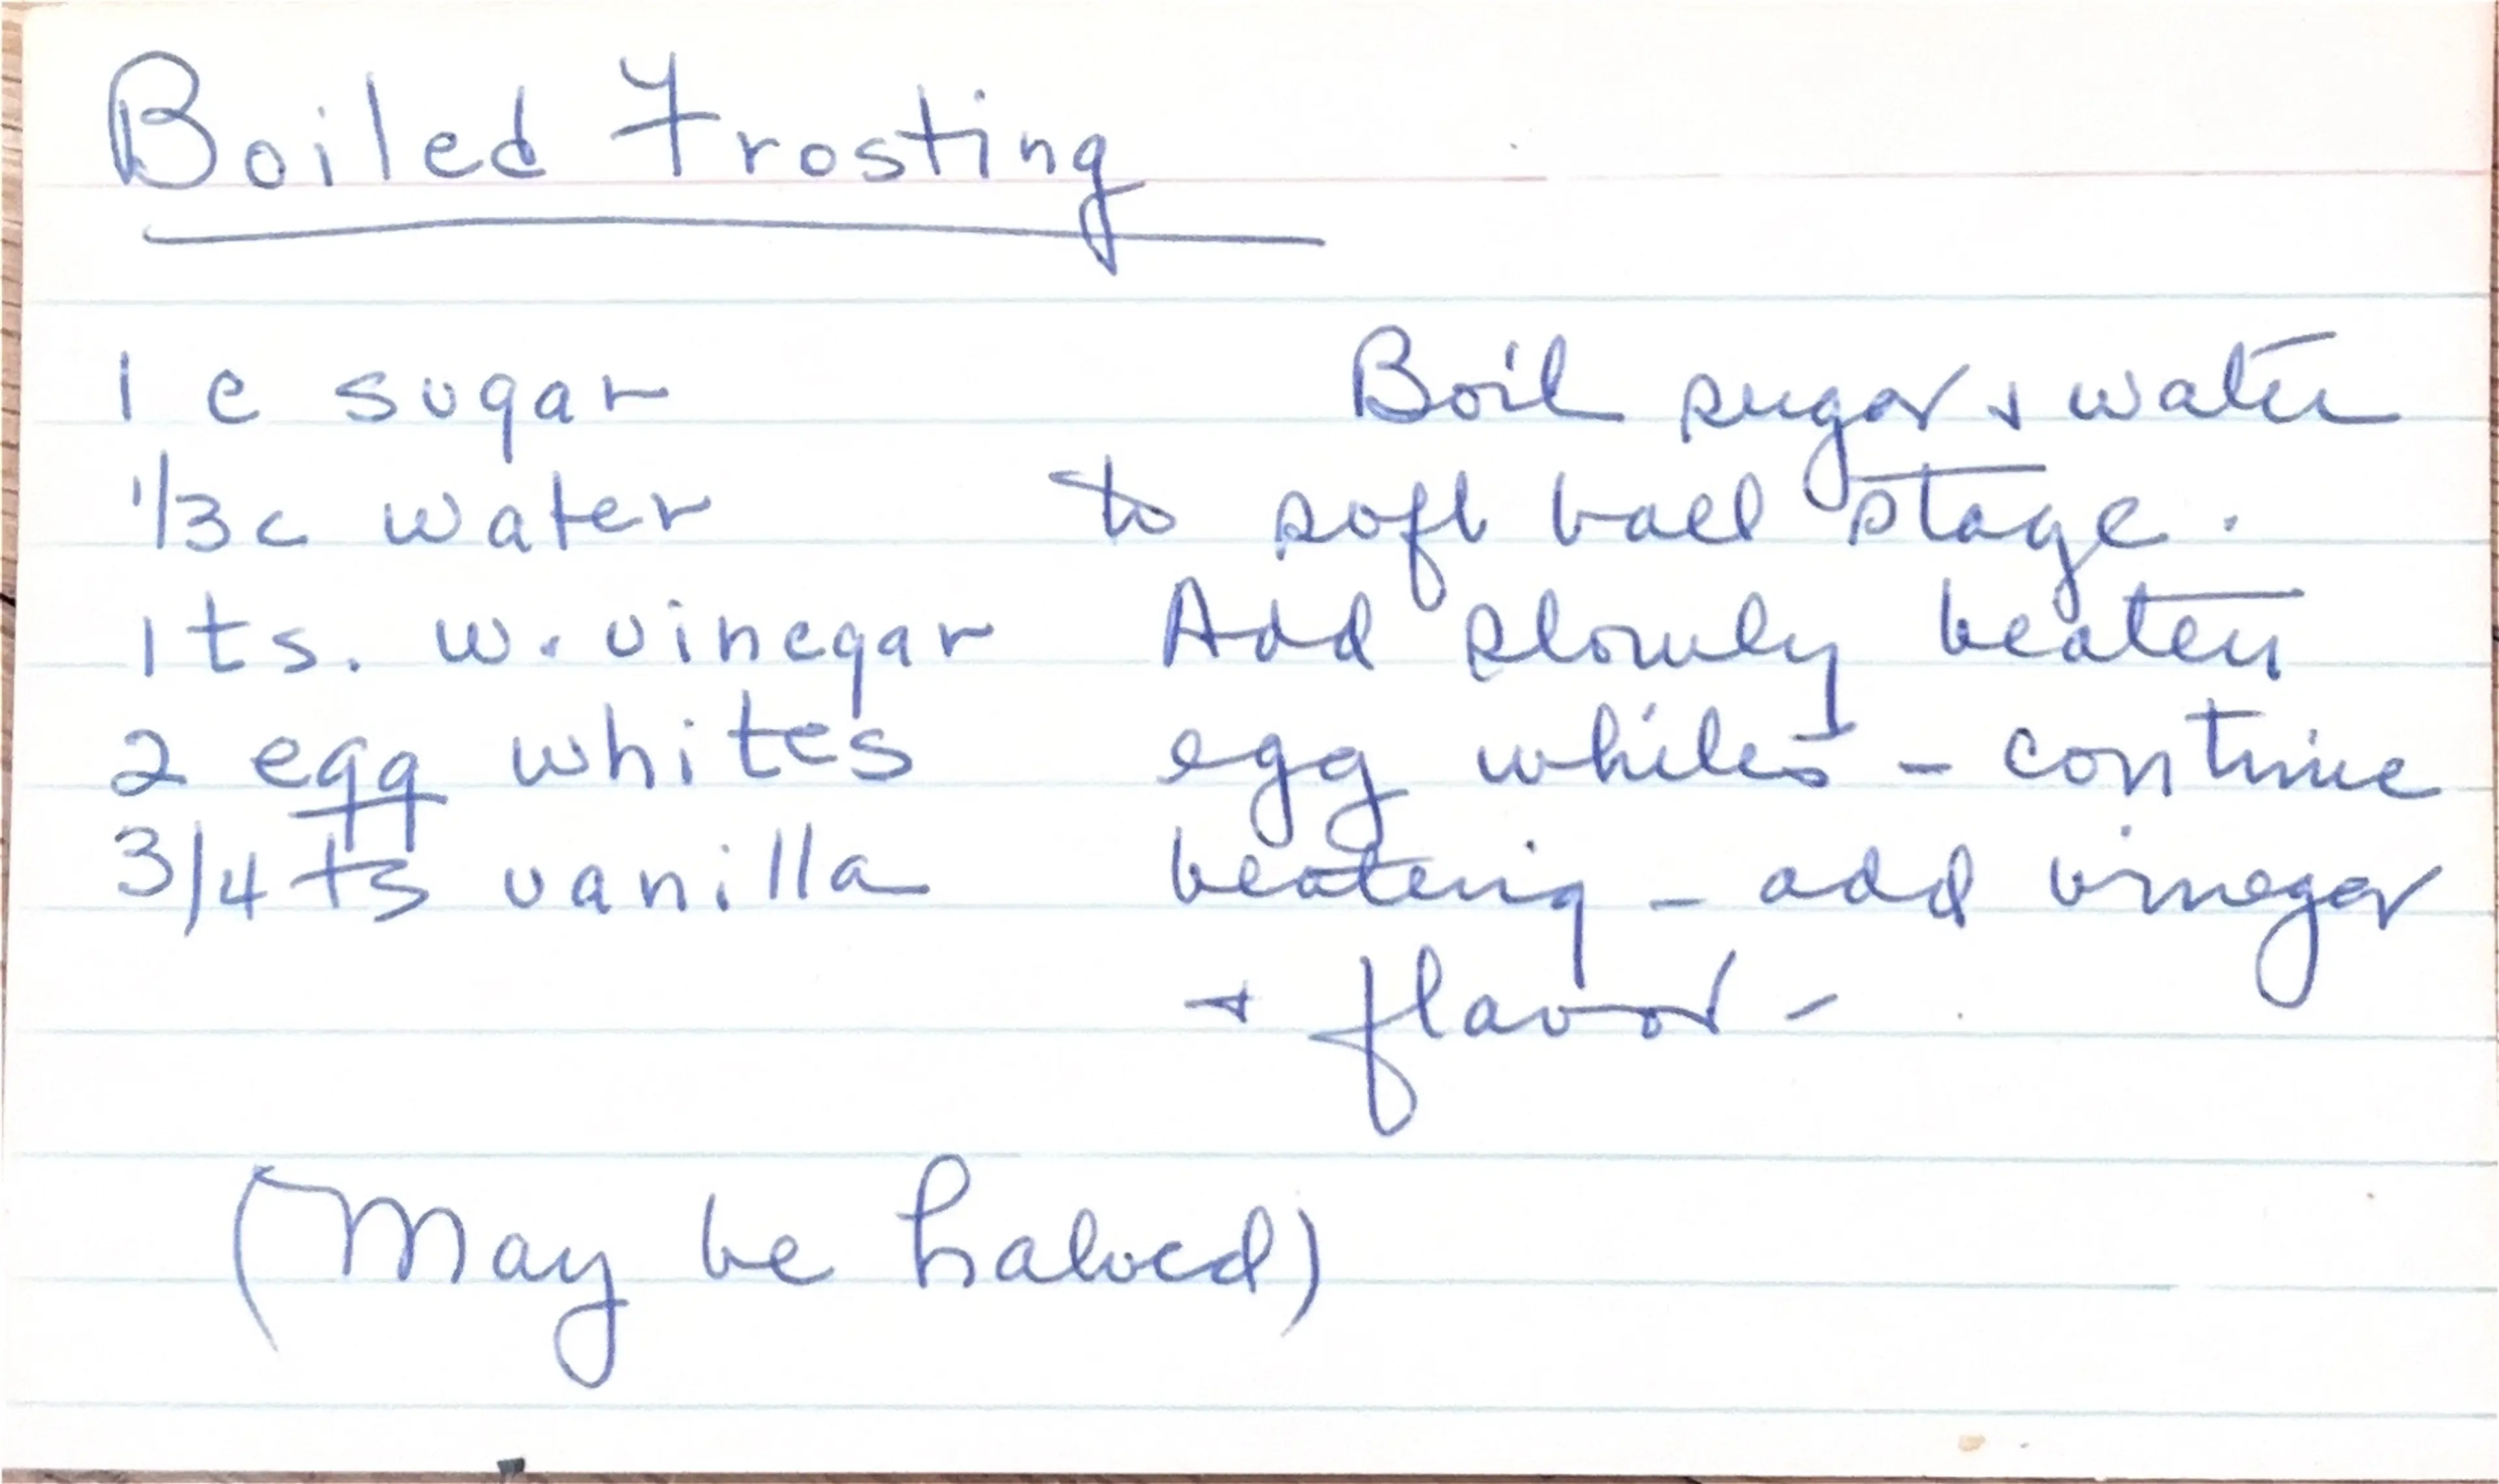 Boiled Frosting
1 c sugar
1/3 c water
1 ts. w. vinegar
2 egg whites
3/4 ts vanilla
Boil sugar + water
to soft ball stage.
Add slowly beaten
egg whites - continue
beating - add vinegar
+ flavor -
(May be halved)